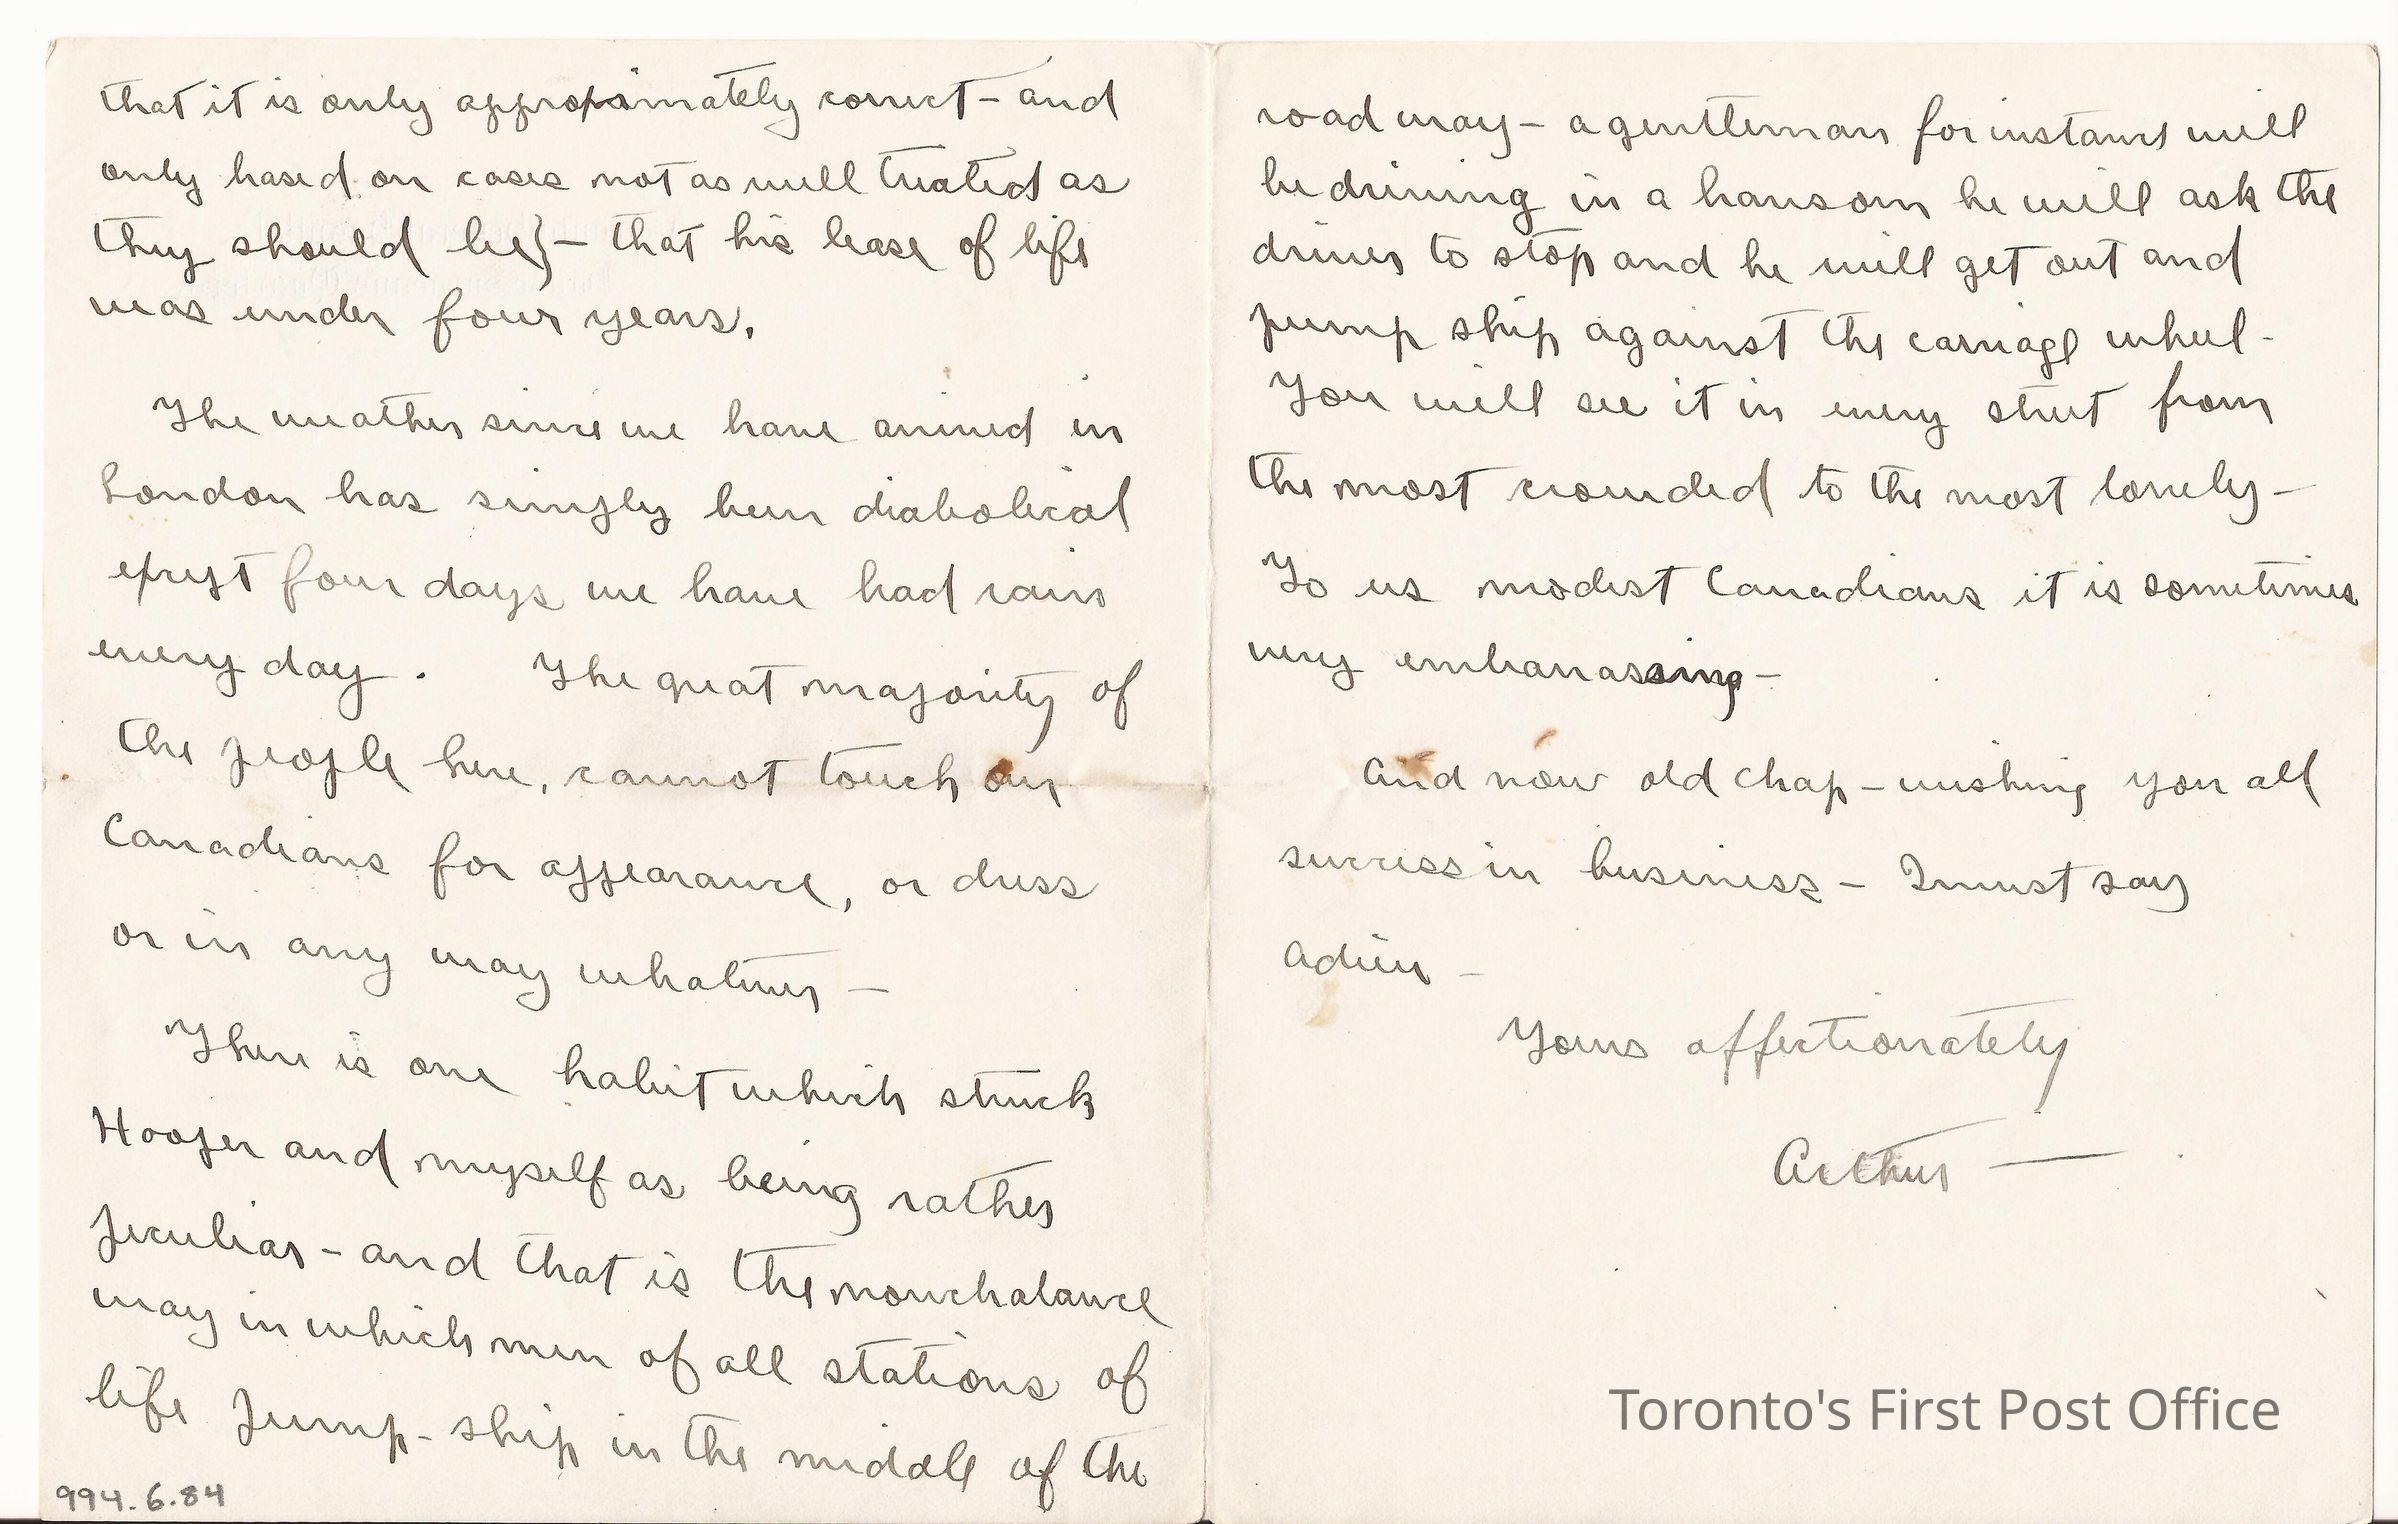 that it is only approximately correct - and
only based on cases not as well treated as
they should be} - that his lease of life
was under four years.
The weather since we have arrived in
London has simply been diabolical
exept four days we have had rain
every day . The great majority of
the people here, cannot touch our
Canadians for appearance, or dress
or in any way whatever -
There is one habit which struck
Hooper and myself as being rather
peculiar - and that is the nonchalance
way in which men of all stations of
life pump-ship in the middle of the
994.6.84
road way - a gentleman for instance will
be driving in a hansom he will ask the
driver to stop and he will get out and
pump ship against the carriage wheel -
You will see it in every street from
the most crowded to the most lonely -
To us modest Canadians it is sometimes
very embarrassing -
And now old chap - wishing you all
success in business - I must say
Adieu -
Yours affectionately
Arthur -
Toronto's First Post Office